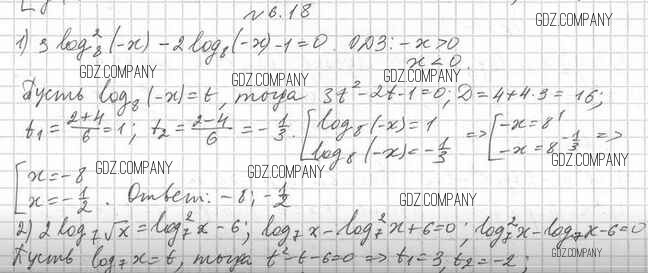 №6.18
GDZ.COMPANY
1) 3 log²₈(-x) - 2 log₈(-x) - 1 = 0. ОДЗ: -x > 0
x < 0.
GDZ.COMPANY GDZ.COMPANY GDZ.COMPANY
Пусть log₈(-x) = t, тогда 3t² - 2t - 1 = 0; D = 4 + 4·3 = 16;
GDZ.COMPANY
t₁ = (2+4)/6 = 1; t₂ = (2-4)/6 = -1/3. [log₈(-x) = 1 => [-x = 8¹
log₈(-x) = -1/3 -x = 8^(-1/3) =>
GDZ.COMPANY GDZ.COMPANY GDZ.COMPANY
[x = -8
x = -1/2. Ответ: -8; -1/2
GDZ.COMPANY
2) 2 log₇√x = log²₇x - 6; log₇x - log²₇x + 6 = 0; log²₇x - log₇x - 6 = 0
GDZ.COMPANY GDZ.COMPANY GDZ.COMPANY
Пусть log₇x = t, тогда t² - t - 6 = 0 => t₁ = 3, t₂ = -2;